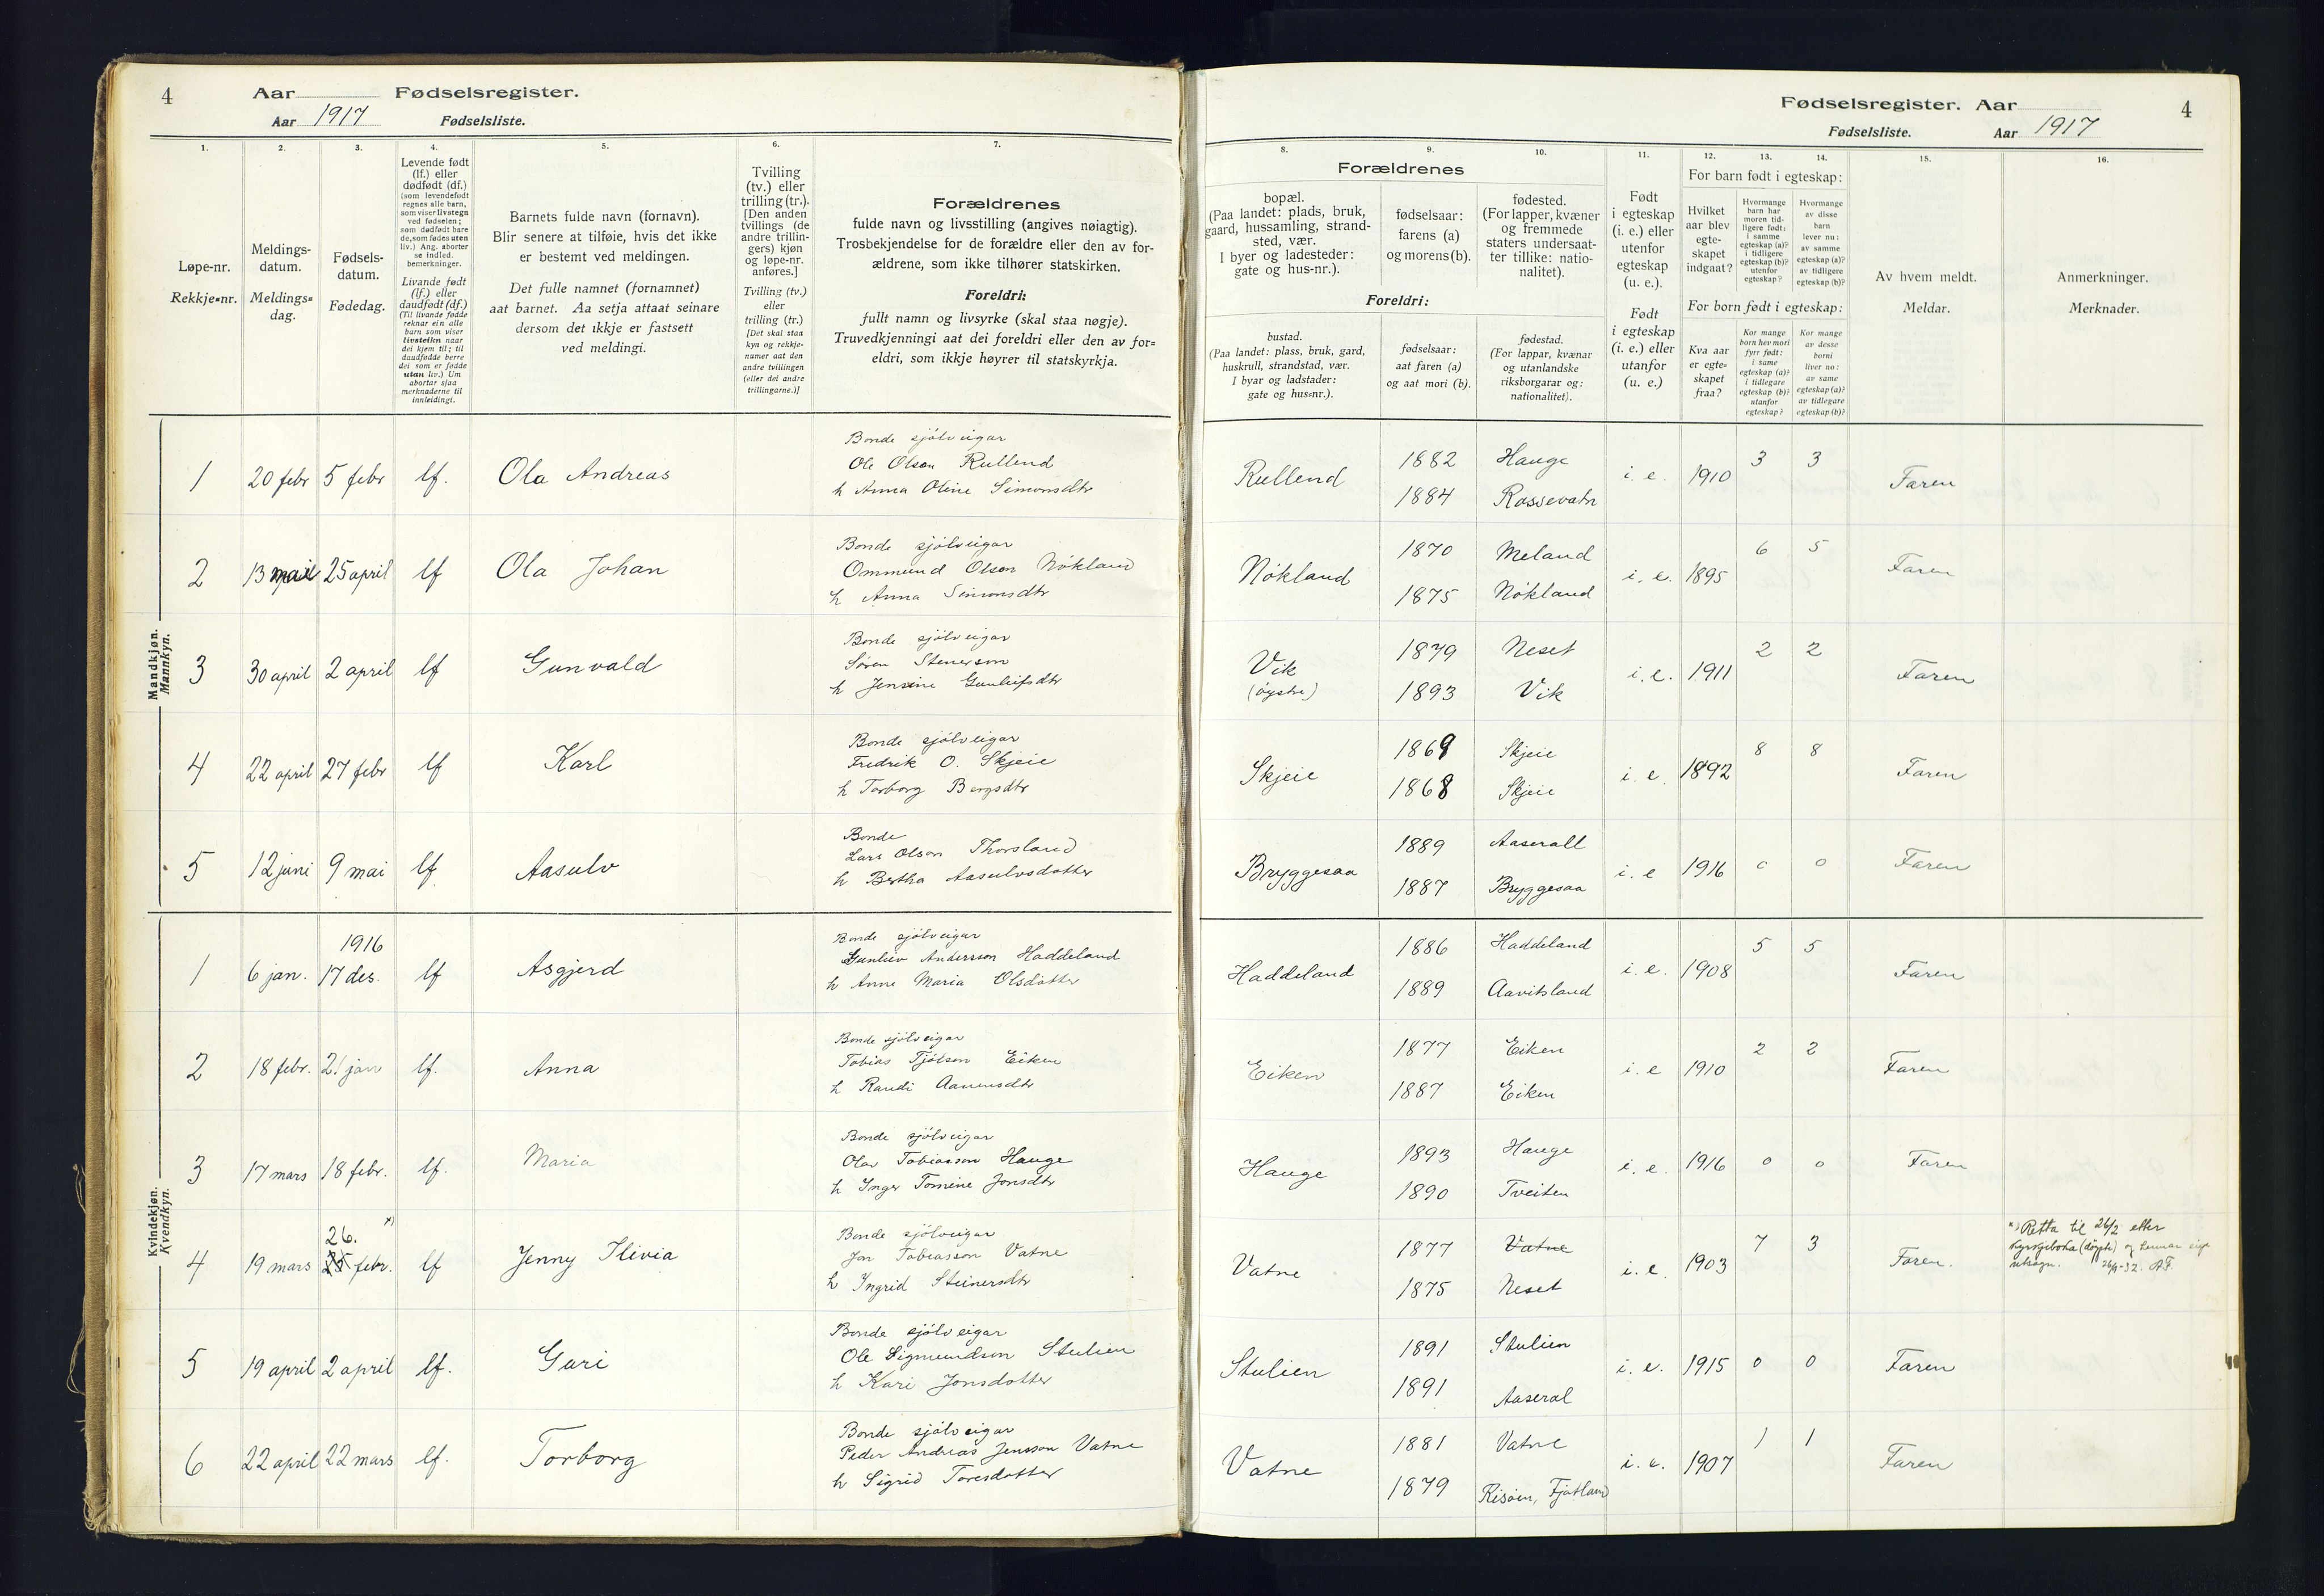 4 Aar Fødselsregister.
Aar 1917 Fødselsliste.
1. 2. 3. 4. 5. 6. 7.
Løpe-nr.
Rekkje-nr.
Meldings-
datum.
Meldings-
dag.
Fødsels-
datum.
Fødedag.
Levende født
(lf.) eller
dødfødt (df.)
(som levendefødt
regnes alle barn,
som viser livstegn
ved fødselen;
som dødfødt bare
de, som fødes uten
liv.) Ang. aborter
se indled.
bemerkninger.
Livande født
(lf.) eller
daudfødt (df.)
(Til livande fødde
reknar ein alle
barn som viser
livsteikn naar
dei kjem til; til
daudfødde berre
dei som er fødde
utan liv.) Um
abortar sjaa
merknaderne til
innleidingi.
Barnets fulde navn (fornavn).
Blir senere at tilføie, hvis det ikke
er bestemt ved meldingen.
Det fulle namnet (fornamnet)
aat barnet. Aa setja attaat seinare
dersom det ikkje er fastsett
ved meldingi.
Tvilling
(tv.) eller
trilling (tr.).
[Den anden
tvillings (de
andre trillin-
gers) kjøn
og løpe-nr.
anføres.]
Tvilling (tv.)
eller
trilling (tr.)
[Det skal staa
kyn og rekkje-
numer aat den
andre tvillingen
(eller dei andre
trillingarne.)]
Forældrenes
fulde navn og livsstilling (angives nøiagtig).
Trosbekjendelse for de forældre eller den av for-
ældrene, som ikke tilhører statskirken.
Foreldri:
fullt namn og livsyrke (skal staa nøgje).
Truvedkjenningi aat dei foreldri eller den av for-
eldri, som ikkje høyrer til statskyrkja.
Mandkjøn.
Mannkyn.
Bonde sjølveigar
1 20 febr 5 febr lf. Ola Andreas Ole Olsen Rullend
h Anna Oline Simonsdtr
Bonde sjølveigar
2 13 mai 25 april lf Ola Johan Ommund Olson Nökland
h Anna Simonsdtr
Bonde sjølveigar
3 30 april 2 april lf Gunvald Søren Stenerson
h Jensine Gunleifsdtr
Bonde sjølveigar
4 22 april 27 febr lf Karl Fredrik O. Skjeie
h Torborg Bergsdtr
Bonde
5 12 juni 9 mai lf Aasulv Lars Olson Thorsland
h Bertha Aasulvsdotter
Kvindekjøn.
Kvendkyn.
1916 Bonde sjølveigar
1 6 jan. 17 des. lf Asgjerd Gunleiv Andersson Haddeland
h Anne Maria Olsdotter
Bonde sjølveigar
2 18 febr. 21 jan lf. Anna Tobias Tjölson Eiken
h Randi Aanensdtr
Bonde sjølveigar
3 17 mars 18 febr. lf. Maria Olav Tobiasson Hauge
h Inger Tomine Jonsdtr
26. x) Bonde sjølveigar
4 19 mars 25 febr. lf Jenny Ilivia Jon Tobiasson Vatne
h Ingrid Steinersdtr
Bonde sjølveigar
5 19 april 2 april lf. Guri Ole Sigmundson Stulien
h Kari Jonsdotter
Bonde sjølveigar
6 22 april 22 mars lf. Torborg Peder Andreas Jensson Vatne
h Sigrid Toresdotter
Fødselsregister. Aar 4
Fødselsliste. Aar 1917
8. 9. 10. 11. 12. 13. 14. 15. 16.
Forældrenes
bopæl.
(Paa landet: plads, bruk,
gaard, hussamling, strand-
sted, vær.
I byer og ladesteder:
gate og hus-nr.).
fødselsaar:
farens (a)
og morens (b).
fødested.
(For lapper, kvæner
og fremmede
staters undersaat-
ter tillike: natio-
nalitet).
Foreldri:
bustad.
(Paa landet: plass, bruk, gard,
huskrull, strandstad, vær.
I byar og ladstader:
gate og hus-nr.).
fødselsaar:
aat faren (a)
og aat mori (b).
fødestad.
(For lappar, kvænar
og utanlandske
riksborgarar og:
nationalitet).
Født
i egteskap
(i. e.) eller
utenfor
egteskap
(u. e.).
Født
i egteskap
(i. e.) eller
utanfor
(u. e.)
For barn født i egteskap:
Hvilket
aar blev
egte-
skapet
indgaat?
Hvormange
barn har
moren tid-
ligere født:
i samme
egteskap (a)?
i tidligere
egteskap (b)?
utenfor
egteskap?
Hvormange
av disse
barn
lever nu:
av samme
egteskap (a)?
av tidligere
egteskap (b)?
For born født i egteskap:
Kva aar
er egte-
skapet
fraa?
Kor mange
born hev mori
fyrr født:
i same
egteskap (a)?
i tidlegare
egteskap (b)?
utanfor
egteskap?
Kor mange
av desse
borni
liver no:
av same
egteskap (a)?
av tidlegare
egteskap (b)?
Av hvem meldt.
Meldar.
Anmerkninger.
Merknader.
1882 Hauge 3 3
Rullend i. e. 1910 Faren
1884 Rossevatn
1870 Meland 6 5
Nökland i. e. 1895 Faren
1875 Nökland
1879 Neset 2 2
Vik i. e. 1911 Faren
(öystre) 1893 Vik
1869 Skjeie 8 8
Skjeie i. e. 1892 Faren
1868 Skjeie
1889 Aaserall
Bryggesaa i. e 1916 0 0 Faren
1887 Bryggesaa
1886 Haddeland 5 5
Haddeland i. e. 1908 Faren
1889 Aavitsland
1877 Eiken 2 2
Eiken i. e 1910 Faren
1887 Eiken
1893 Hauge
Hauge i. e. 1916 0 0 Faren
1890 Tveiten
1877 Vatne 7 3 x) Retta til 26/2 etter
Vatne i. e. 1903 Faren. kyrkjeboka (døypte) og hennar eige
1875 Neset utsagn. 26/9-32. A.F.
1891 Stulien
Stulien i. e. 1915 0 0 Faren
1891 Aaseral
1881 Vatne 1 1
Vatne i. e. 1907 Faren
1879 Risöen, Fjotland